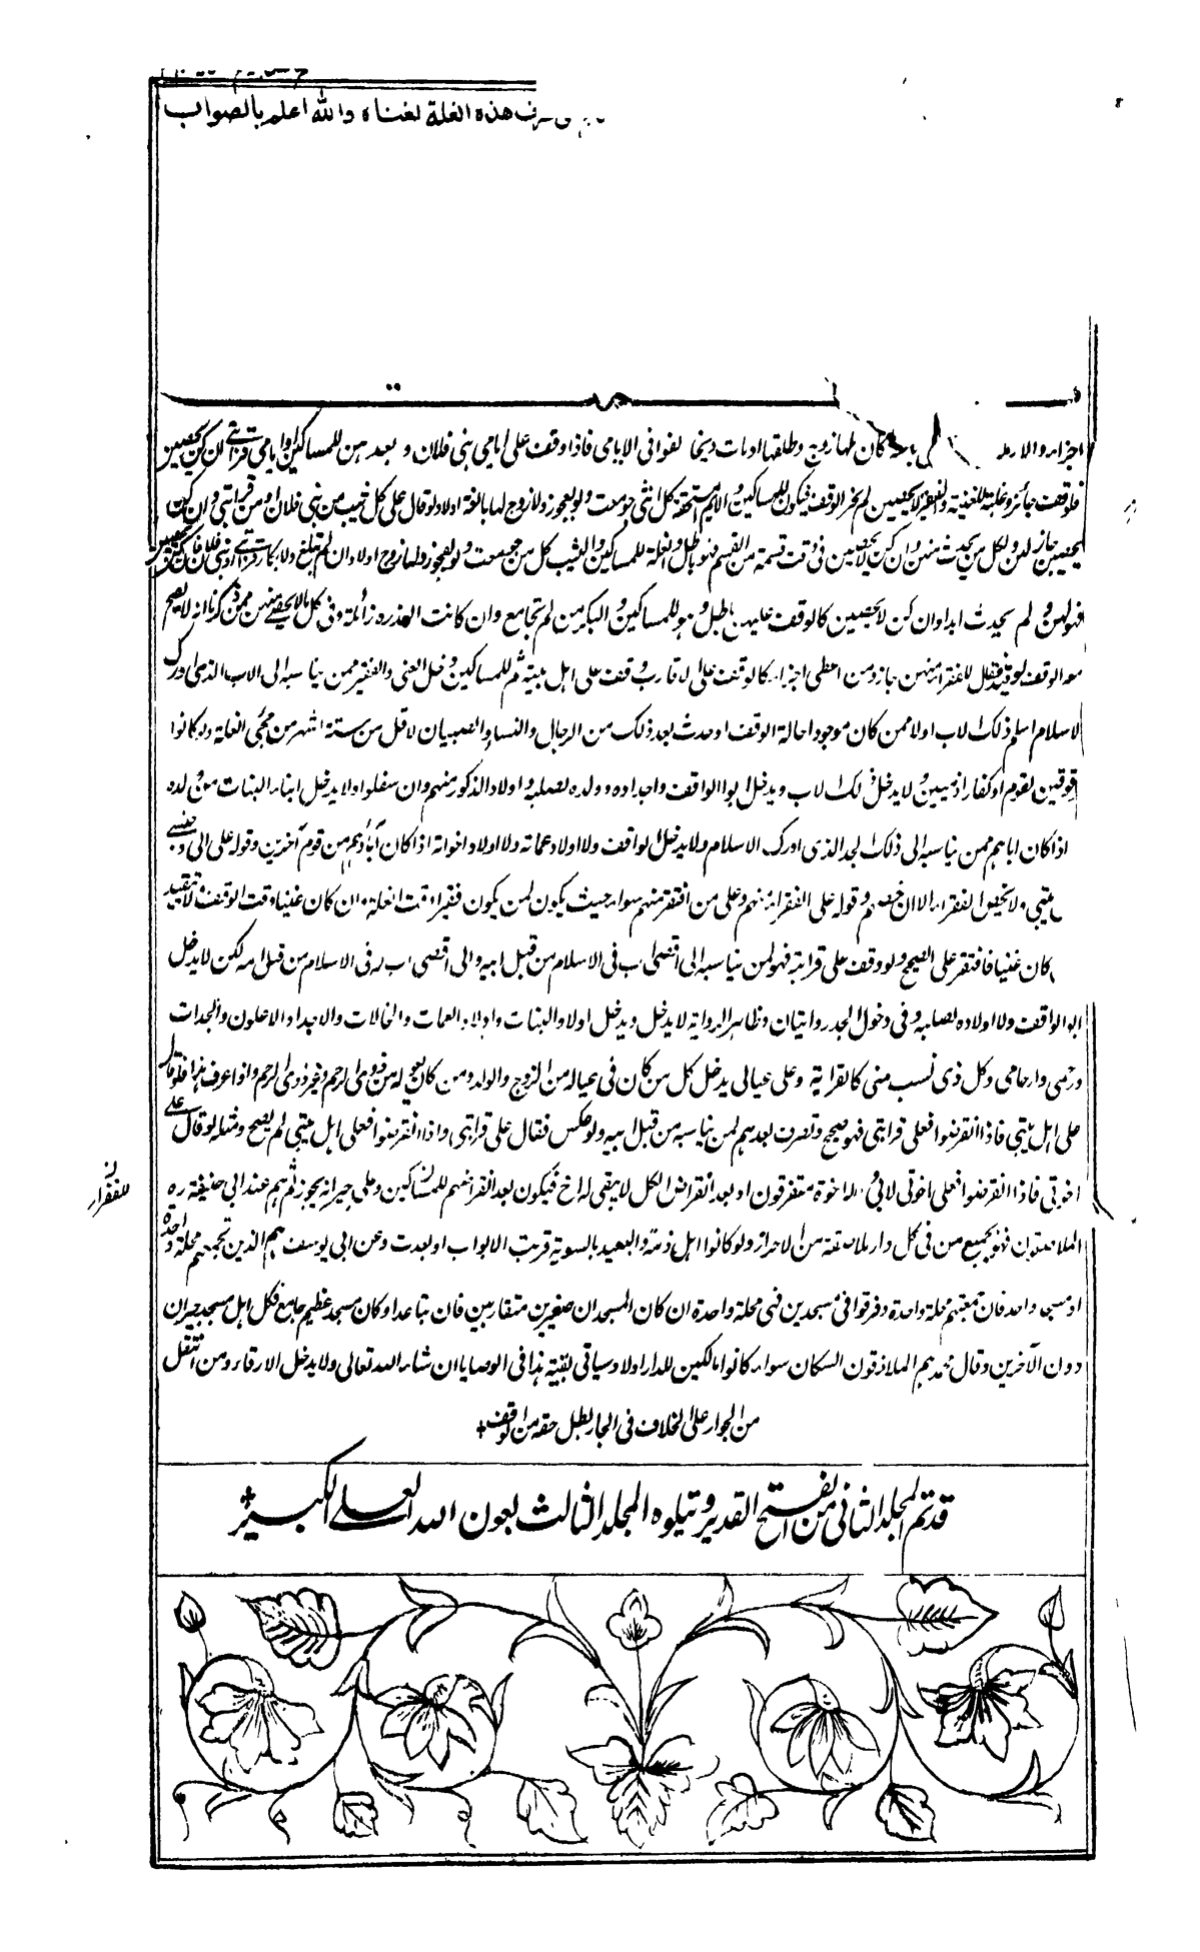 هذه الغلة لغناه والله اعلم بالصواب
اجزاءه والارملة كان لها زوج وطلقها او مات فى الايامى فاذا وقف على ايامى بنى فلان و بعدهن للمساكين او ايامى قرابتى ان كن يحصين
فالوقف جائز وغلته للغنية والفقيرة لا يحصين لم يجز الوقف فيكون للمساكين والايم كل انثى جومعت ولو بفجور ولا زوج لها بالغة اولا ولو قال على كل ثيب من بنى فلان او من قرابتى وان كن
يحصين جاز لهن ولكل من يحدث منهن وان كن لا يحصين فى وقت قسمة من القسم فهو باطل والغلة للمساكين والثيب كل من جومعت ولو بفجور ولها زوج اولا وان لم تبلغ
فهو لهن و لم يحدث ابدا وان كن لا يحصين كالوقف عليهن باطل وهو للمساكين والبكر من لم تجامع وان كانت العذرة زائلة وفى كل مالا يحصى منهن ممن ذكرنا انه لا يصح
معه الوقف لو قيد فقال للفقراء منهن جاز ومن اعطى اجزاء كالوقف على الاقارب وقف على اهل بيته ثم للمساكين دخل الغنى والفقير ممن يناسبه الى الاب الذى ادرك
الاسلام اسلم ذلك الاب اولا ممن كان موجودا حالة الوقف او حدث بعد ذلك من الرجال والنساء والصبيان لاقل من ستة اشهر من مجئ الغلة ولو كانوا
مرقوقين لقوم او كفارا ذميين ولا يدخل ذلك الاب ويدخل ابوا الواقف واجداده وولده لصلبه واولاد الذكور منهم وان سفلوا ولا يدخل ابناء البنات من ولده
اذا كان اباهم ممن يناسبه الى ذلك الجد الذى ادرك الاسلام ولا يدخل الواقف ولا اولاد عماته ولا اولاد اخواته اذا كان آباؤهم من قوم آخرين وقوله على الى وجنسى
كبيتى ولا يخص الفقراء الا ان خصهم وقوله على الفقراء منهم وعلى من افتقر منهم سواء حيث يكون لمن يكون فقيرا وقت الغلة وان كان غنيا وقت الوقف ولا تقييد
كان غنيا فافتقر على الصحيح ولو وقف على قرابته فهو لمن يناسبه الى اقصى اب فى الاسلام من قبل ابيه والى اقصى اب له فى الاسلام من قبل امه لكن لا يدخل
ابو الواقف ولا اولاده لصلبه وفى دخول الجد روايتان وظاهر الرواية لا يدخل ويدخل اولاد البنات واولاد العمات والخالات والاجداد الاعلون والجدات
ورحمى وارحامى وكل ذى نسب منى كالقرابة وعلى عيالى يدخل كل من كان فى عياله من الزوج والولد ومن كان يعوله من ذوى الرحم وغير ذوى الرحم واذا عرف هذا فلو قال
على اهل بيتى فاذا انقرضوا فعلى قرابتى فهو صحيح وتصرف بعدهم لمن يناسبه من قبل ابيه ولو عكس فقال على قرابتى واذا انقرضوا فعلى اهل بيتى لم يصح ومثله لو قال على
اخوتى فاذا انقرضوا فعلى اخوتى لابى الاخوة متفرقون اذ بعد انقراض الكل لا يبقى له اخ فيكون بعد انقراضهم للمساكين وعلى جيرانه يجوز ثم هم عند ابى حنيفة ره
للفقراء
الملاصقون فهو لجميع من فى كل دار ملاصقة من الاحرار ولو كانوا اهل ذمة والبعيد بالسوية قربت الابواب او بعدت وعن ابى يوسف هم الذين تجمعهم محلة واحدة
او مسجد واحد فان جمعتهم محلة واحدة وفرقوا فى مسجدين فهى محلة واحدة ان كان المسجدان صغيرين متقاربين فان تباعدا وكان مسجد عظيم جامع فكل اهل مسجد جيران
دون الآخرين وقال محمد هم الملازقون السكان سواء كانوا مالكين للدار اولا وسياتى بقية هذا فى الوصايا ان شاء الله تعالى ولا يدخل الارقاء ومن انتقل
من الجوار على الخلاف فى الجار بطل حقه من الوقف
قد تم المجلد الثانى من الفتح القدير ويتلوه المجلد الثالث بعون الله العلى الكبير